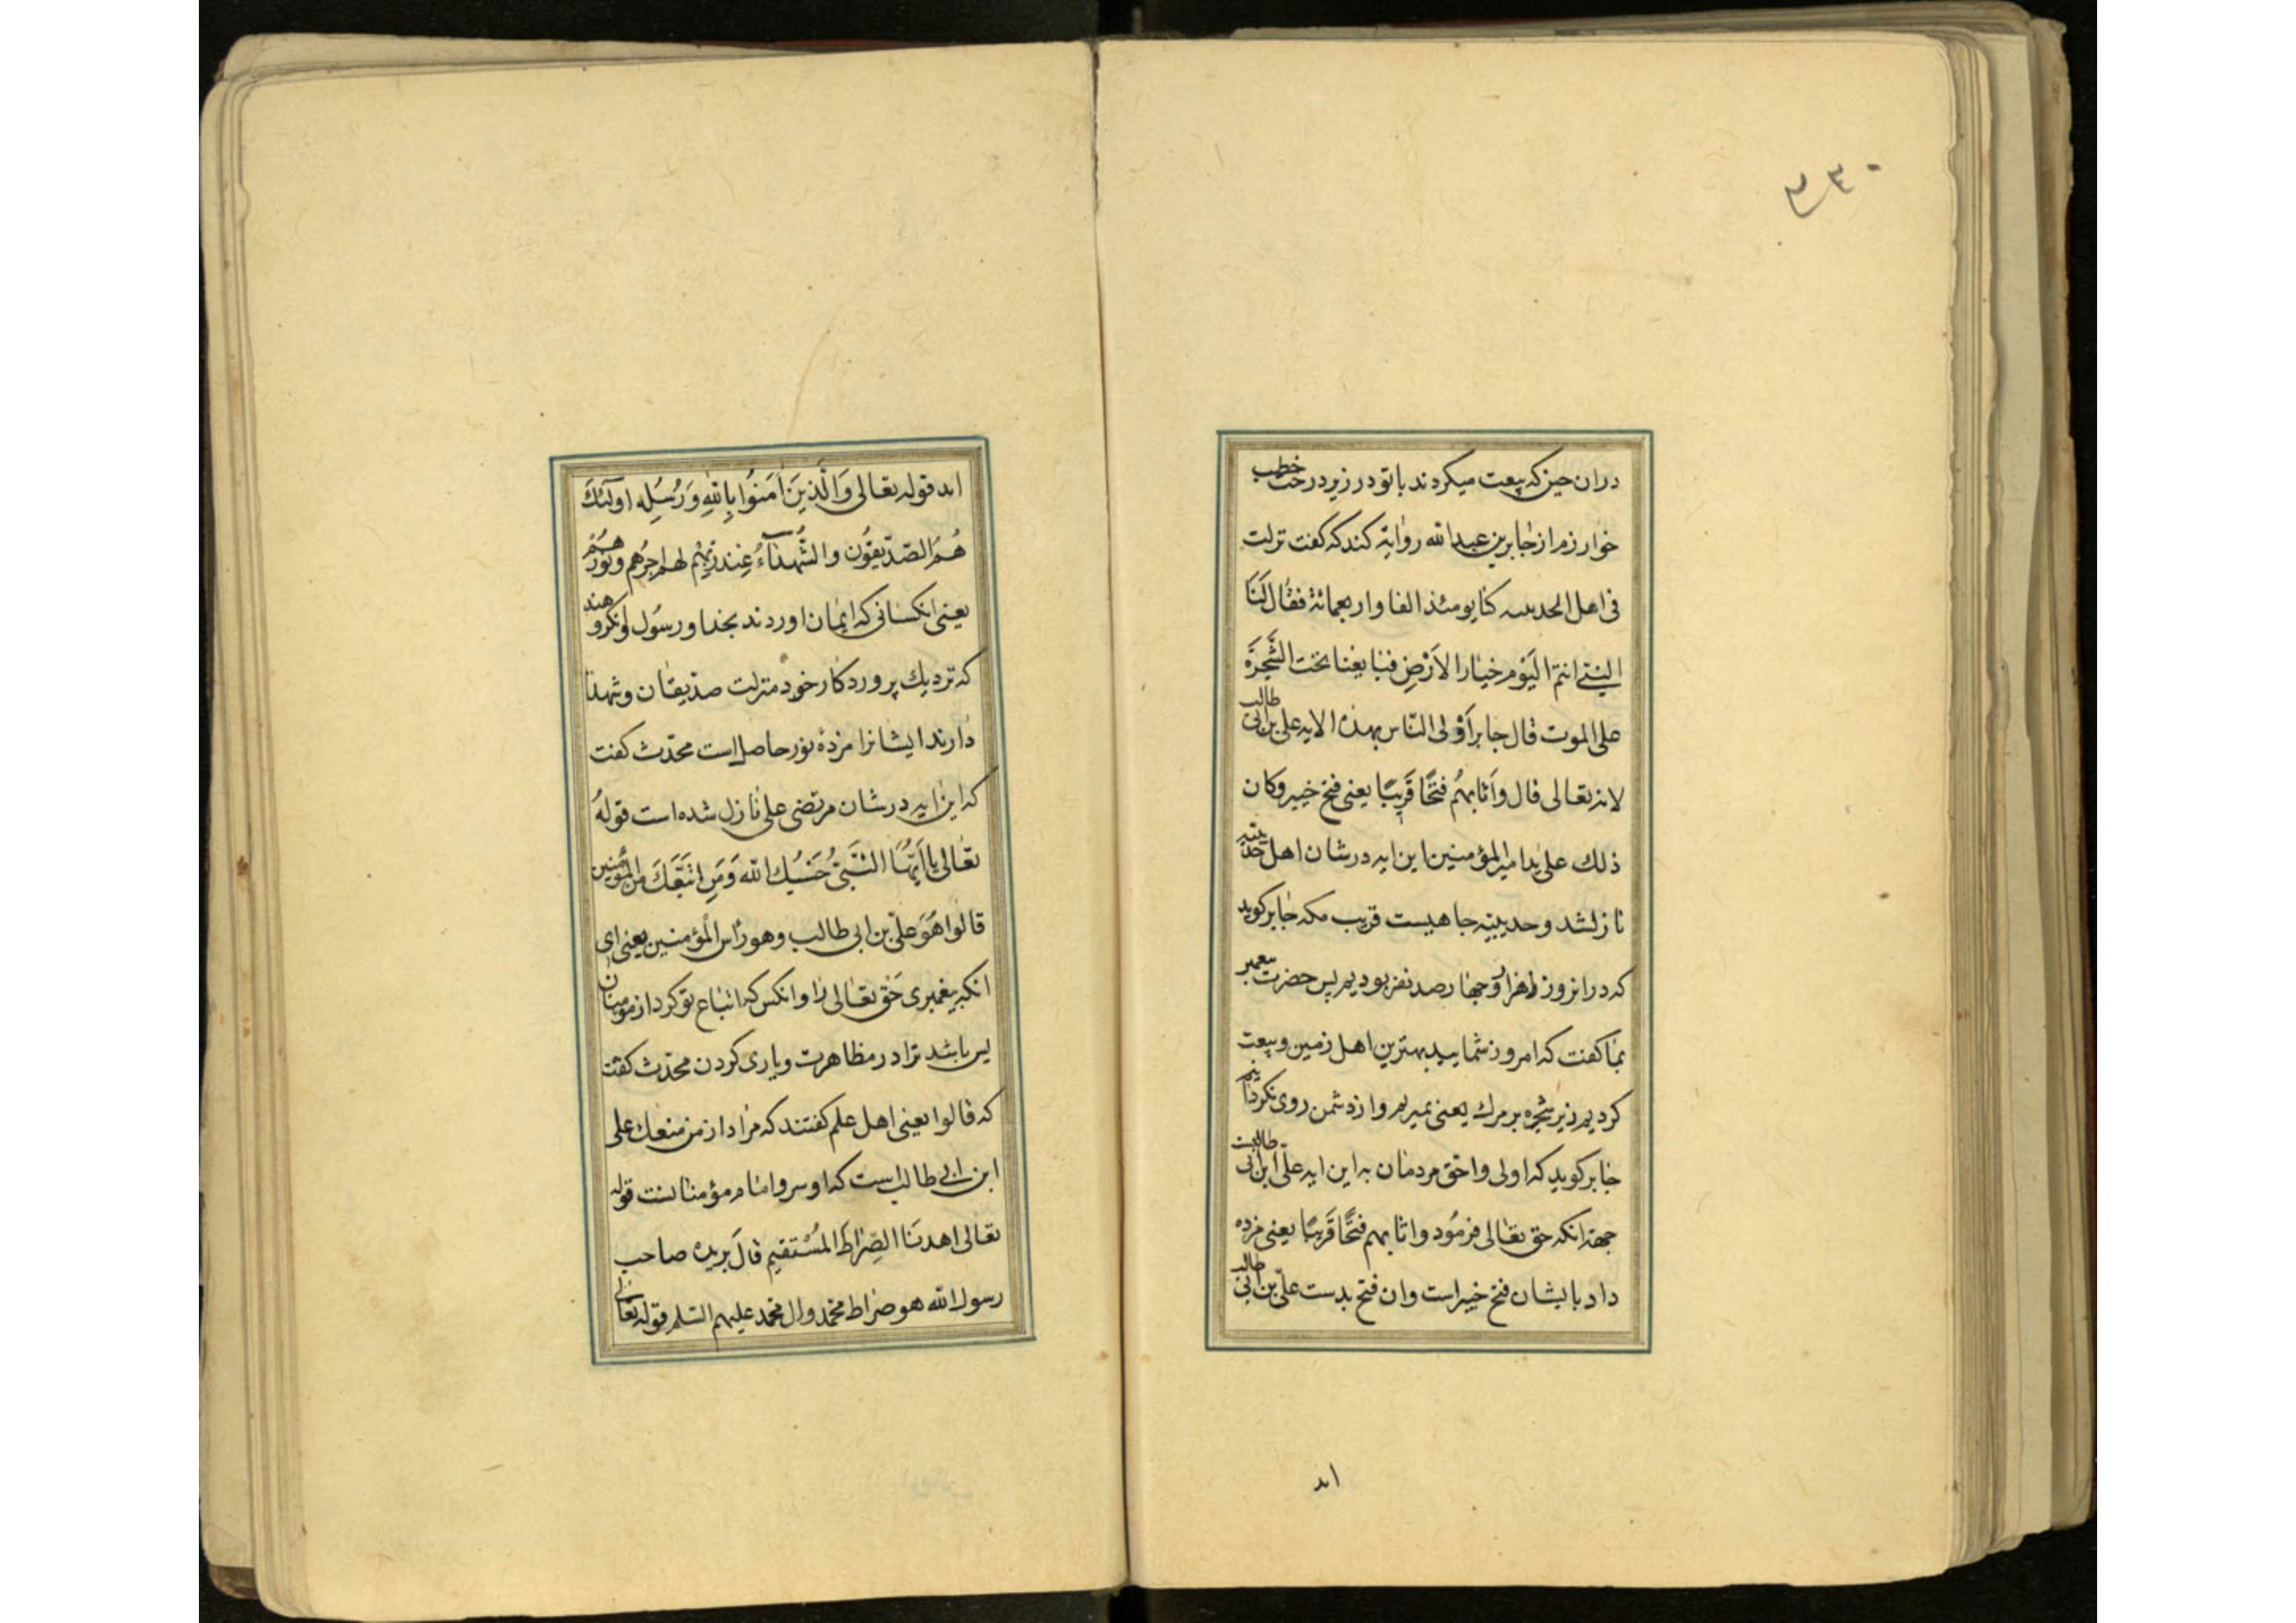 ۲۳۰
دران حین که بیعت میکردند با تو در زیر درخت خطیب
خوارزم از جابر بن عبد الله روایة کند که گفت نزلت
فی اهل الحدیبیه کنا یومئذ الفا واربعمائة فقال لنا
النبی انتم الیوم خیار الارض فبایعنا تحت الشجرة
علی الموت قال جابر اولی الناس بهذه الایه علی بن ابی طالب
لانه تعالی قال وَاَثابهُم فتحًا قَریبًا یعنی فتح خیبر وکان
ذلك علی ید امیر المؤمنین این ایه در شان اهل حدیبیه
نازل شد و حدیبیه جاهیست قریب مکه جابر کوید
که در انروز ما هزار و چهار صد نفر بودیم پس حضرت پیغمبر
بما کفت که امروز شمایید بهترین اهل زمین و بیعت
کردیم زیر شجره بر مرك یعنی بمیریم و از دشمن روی نکردانیم
جابر کوید که اولی واحق مردمان به این ایه علی ابن ابی طالبست
جهة انکه حق تعالی فرمُود واثابهم فتحًا قَریبًا یعنی مزده
داد بایشان فتح خیبر است وان فتح بدست علیّ بن ابی طالب
اند
اند قوله تعالی وَالَّذینَ اٰمَنُوا بِاللهِ وَرُسُلِه اولٰئكَ
هُمُ الصّدّیقُون والشُّهدَآءُ عِندَ رَبِّهِم لهم اجرُهم ونورُهُم
یعنی انکسانی که ایمان اوردند بخدا و رسُول او نکروهند
که نزدیك پروردکار خود منزلت صدّیقان و شهدا
دارند ایشانرا مزدهٔ نور حاصل است محدّث کفت
که این ایه در شان مرتضی علی نازل شده است قولهُ
تعالی یا اَیّهَا النَّبیُّ حَسْبُك الله وَمَنِ اتّبَعَكَ من المؤمنین
قالوا هُوَ علیّ بن ابی طالب وهو رأس المؤمنین یعنی ای
انکه پیغمبری حَق تعالی را و انکس که اتباع تو کرد از مومنان
بس باشد ترا در مظاهرت ویاری کردن محدّث کفت
که قالوا یعنی اهل علم کفتند که مراد از من تبعك علی
ابن ابی طالبست که او سر و امام مؤمنانست قوله
تعالی اهدنَا الصِّراطَ المُسْتَقیم قالَ بریده صاحب
رسول الله هو صراط محمد وال محمد علیهم السّلم قوله تعالی